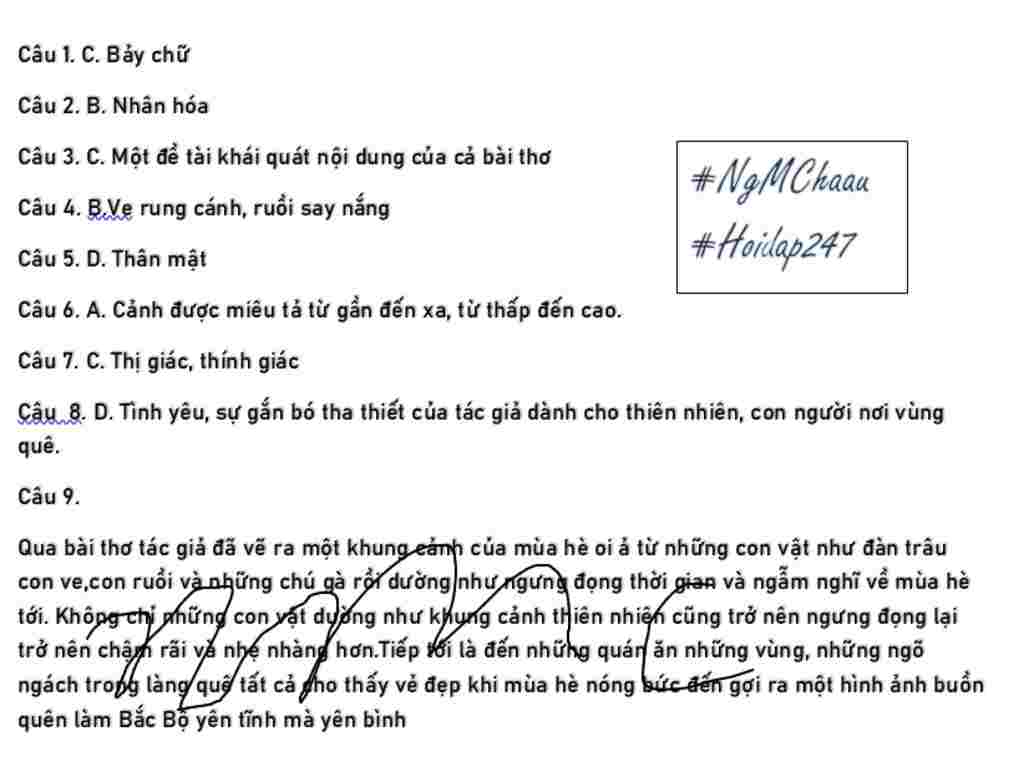 Câu 1. C. Bảy chữ
Câu 2. B. Nhân hóa
Câu 3. C. Một để tài khái quát nội dung của cả bài thơ
#NgMChaau
Câu 4. B.Ve rung cánh, ruồi say nắng
#Hoidap247
Câu 5. D. Thân mật
Câu 6. A. Cảnh được miêu tả từ gần đến xa, từ thấp đến cao.
Câu 7. C. Thị giác, thính giác
Câu 8. D. Tình yêu, sự gắn bó tha thiết của tác giả dành cho thiên nhiên, con người nơi vùng
quê.
Câu 9.
Qua bài thơ tác giả đã vẽ ra một khung cảnh của mùa hè oi ả từ những con vật như đàn trâu
con ve,con ruồi và những chú gà rồi dường như ngưng đọng thời gian và ngẫm nghĩ về mùa hè
tới. Không chỉ những con vật dường như khung cảnh thiên nhiên cũng trở nên ngưng đọng lại
trở nên chậm rãi và nhẹ nhàng hơn.Tiếp tới là đến những quán ăn những vùng, những ngõ
ngách trong làng quê tất cả cho thấy vẻ đẹp khi mùa hè nóng bức đến gợi ra một hình ảnh buồn
quên làm Bắc Bộ yên tĩnh mà yên bình